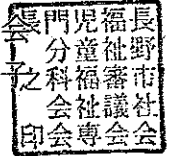 長野市社会
福祉審議会
児童福祉専
門分科会会
長之印
子